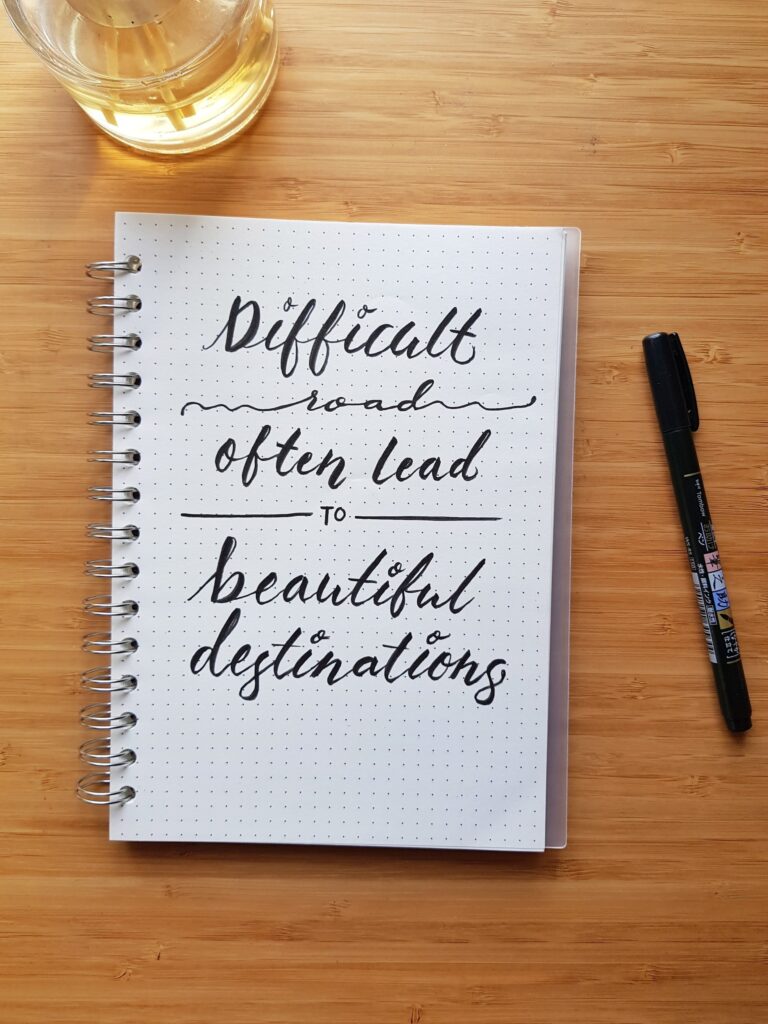 Difficult
road
often lead
TO
beautiful
destinations
Tombow